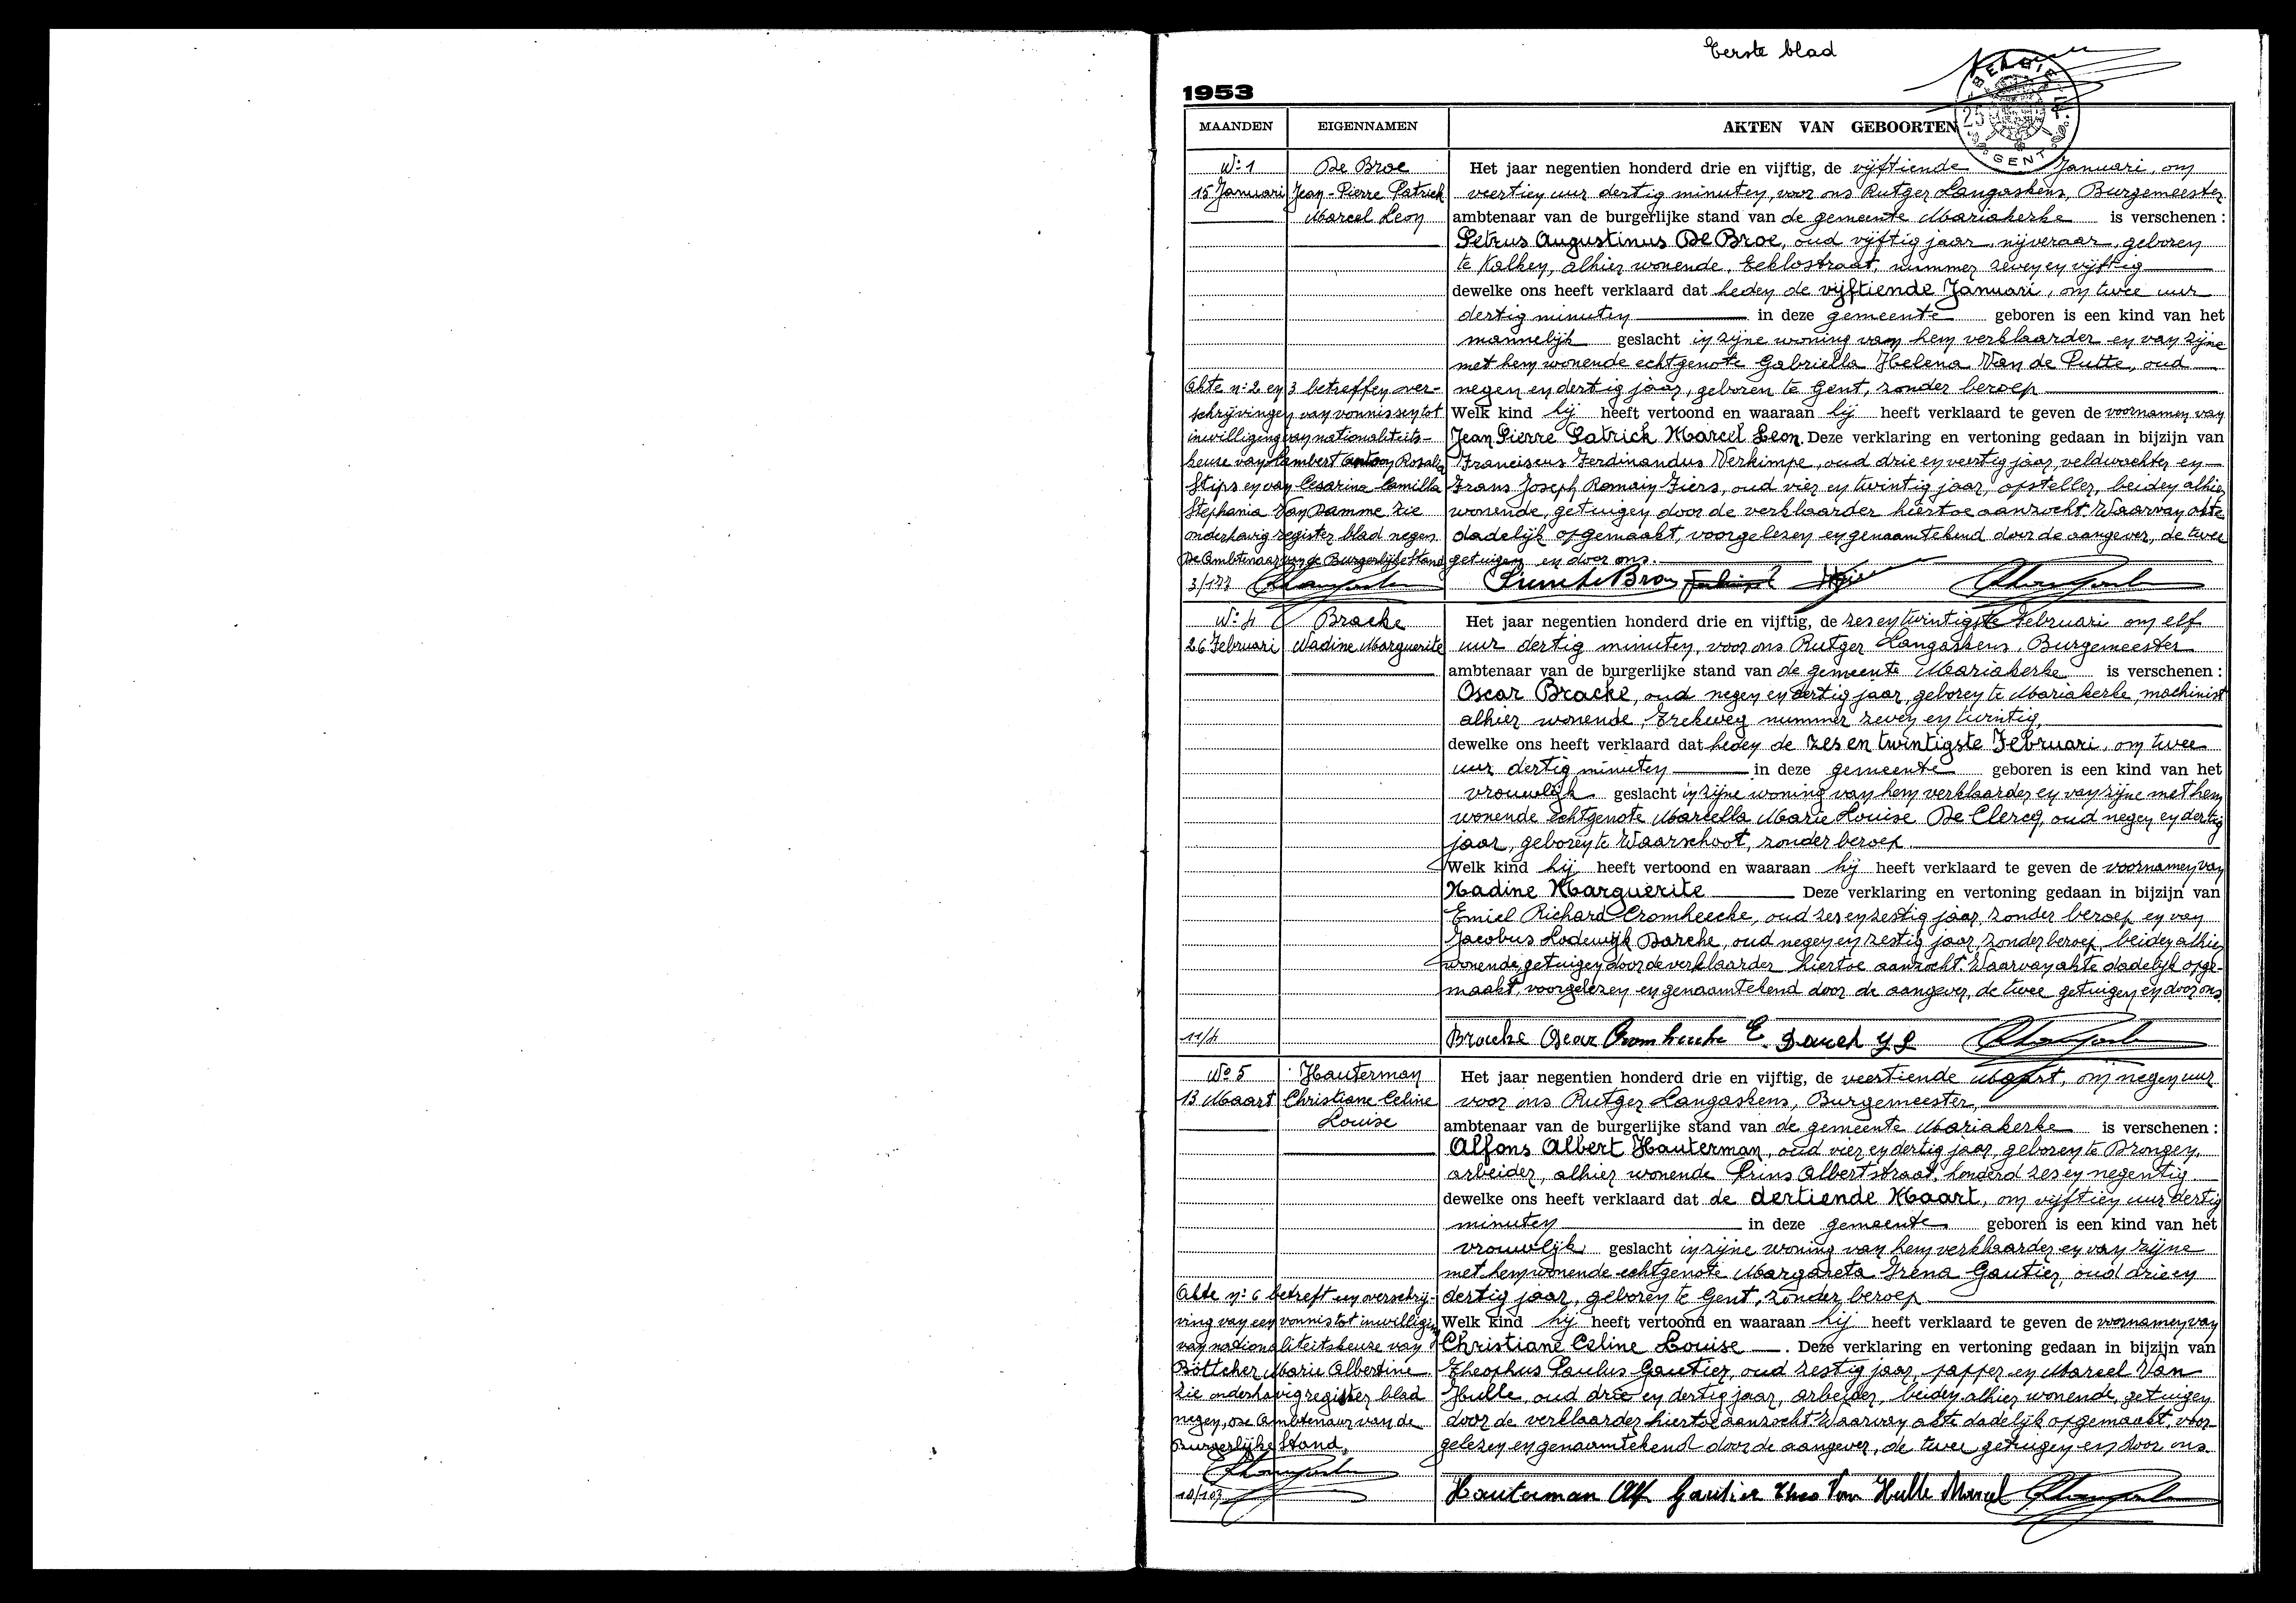 Eerste blad
BELGIE
25
GENT
1953
MAANDEN EIGENNAMEN AKTEN VAN GEBOORTEN
N:1
15 Januari
De Broe
Jean-Pierre Patrick
Marcel Leon
Het jaar negentien honderd drie en vijftig, de vijftiende Januari, om
veertien uur dertig minuten, voor ons Rutger Langaskens, Burgemeester
ambtenaar van de burgerlijke stand van de gemeente Mariakerke is verschenen :
Petrus Augustinus De Broe, oud vijftig jaar, nijveraar, geboren
te Kalken, alhier wonende, Eeklostraat, nummer zeven en vijftig
dewelke ons heeft verklaard dat heden de vijftiende Januari, om twee uur
dertig minuten in deze gemeente geboren is een kind van het
mannelijk geslacht in zijne woning van hem verklaarder en van zijne
met hem wonende echtgenote Gabriella Helena Van de Putte, oud
negen en dertig jaar, geboren te Gent, zonder beroep
Welk kind hij heeft vertoond en waaraan hij heeft verklaard te geven de voornamen van
Jean Pierre Patrick Marcel Leon. Deze verklaring en vertoning gedaan in bijzijn van
Franciscus Ferdinandus Verkimpe, oud drie en veertig jaar, veldwachter en
Frans Joseph Romain Fiers, oud vier en twintig jaar, opsteller, beiden alhier
wonende, getuigen door de verklaarder hiertoe aanzocht. Waarvan akte
dadelijk opgemaakt, voorgelezen en genaamtekend door de aangever, de twee
getuigen en door ons.
Akte n:2 en 3 betreffen over-
schrijvingen van vonnissen tot
inwilliging van nationaliteits-
keuze van Lambert Antoon Rosalia
Stips en van Cesarina Camilla
Stephania Van Damme zie
onderhavig register blad negen
De Ambtenaar van de Burgerlijke Stand
3/177
N:4
26 Februari
Bracke
Nadine Marguerite
Het jaar negentien honderd drie en vijftig, de zes en twintigste Februari om elf
uur dertig minuten, voor ons Rutger Langaskens, Burgemeester
ambtenaar van de burgerlijke stand van de gemeente Mariakerke is verschenen :
Oscar Bracke, oud negen en dertig jaar, geboren te Mariakerke, machinist
alhier wonende, Trekweg nummer zeven en twintig,
dewelke ons heeft verklaard dat heden de zes en twintigste Februari, om twee
uur dertig minuten in deze gemeente geboren is een kind van het
vrouwelijk geslacht in zijne woning van hem verklaarder en van zijne met hem
wonende echtgenote Marcella Marie Louise De Clercq, oud negen en dertig
jaar, geboren te Waarschoot, zonder beroep
Welk kind hij heeft vertoond en waaraan hij heeft verklaard te geven de voornamen van
Nadine Marguerite Deze verklaring en vertoning gedaan in bijzijn van
Emiel Richard Cromheecke, oud zes en zestig jaar, zonder beroep en van
Jacobus Lodewijk Darche, oud negen en zestig jaar, zonder beroep, beiden alhier
wonende, getuigen door de verklaarder hiertoe aanzocht. Waarvan akte dadelijk opge-
maakt, voorgelezen en genaamtekend door de aangever, de twee getuigen en door ons.
11/4
Bracke Oscar Cromheecke E.
N° 5
13 Maart
Hauterman
Christiane Celine
Louise
Het jaar negentien honderd drie en vijftig, de veertiende Maart, om negen uur
voor ons Rutger Langaskens, Burgemeester,
ambtenaar van de burgerlijke stand van de gemeente Mariakerke is verschenen :
Alfons Albert Hauterman, oud vier en dertig jaar, geboren te Drongen,
arbeider, alhier wonende Prins Albertstraat, honderd zes en negentig
dewelke ons heeft verklaard dat de dertiende Maart, om vijftien uur dertig
minuten in deze gemeente geboren is een kind van het
vrouwelijk geslacht in zijne woning van hem verklaarder en van zijne
met hem wonende echtgenote Margareta Irena Gautier, oud drie en
dertig jaar, geboren te Gent, zonder beroep
Welk kind hij heeft vertoond en waaraan hij heeft verklaard te geven de voornamen van
Christiane Celine Louise . Deze verklaring en vertoning gedaan in bijzijn van
Theophus Paulus Gautier, oud zestig jaar, sapper en Marcel Van
Hulle, oud drie en dertig jaar, arbeider, beiden alhier wonende, getuigen
door de verklaarder hiertoe aanzocht. Waarvan akte dadelijk opgemaakt, voor-
gelezen en genaamtekend door de aangever, de twee getuigen en door ons.
Akte n:6 betreft een overschrij-
ving van een vonnis tot inwilliging
van nationaliteitskeuze van
Böttcher Marie Albertine
zie onderhavig register blad
negen, De Ambtenaar van de
Burgerlijke Stand,
10/103
Hauterman Alf Gautier Theo Van Hulle Marcel